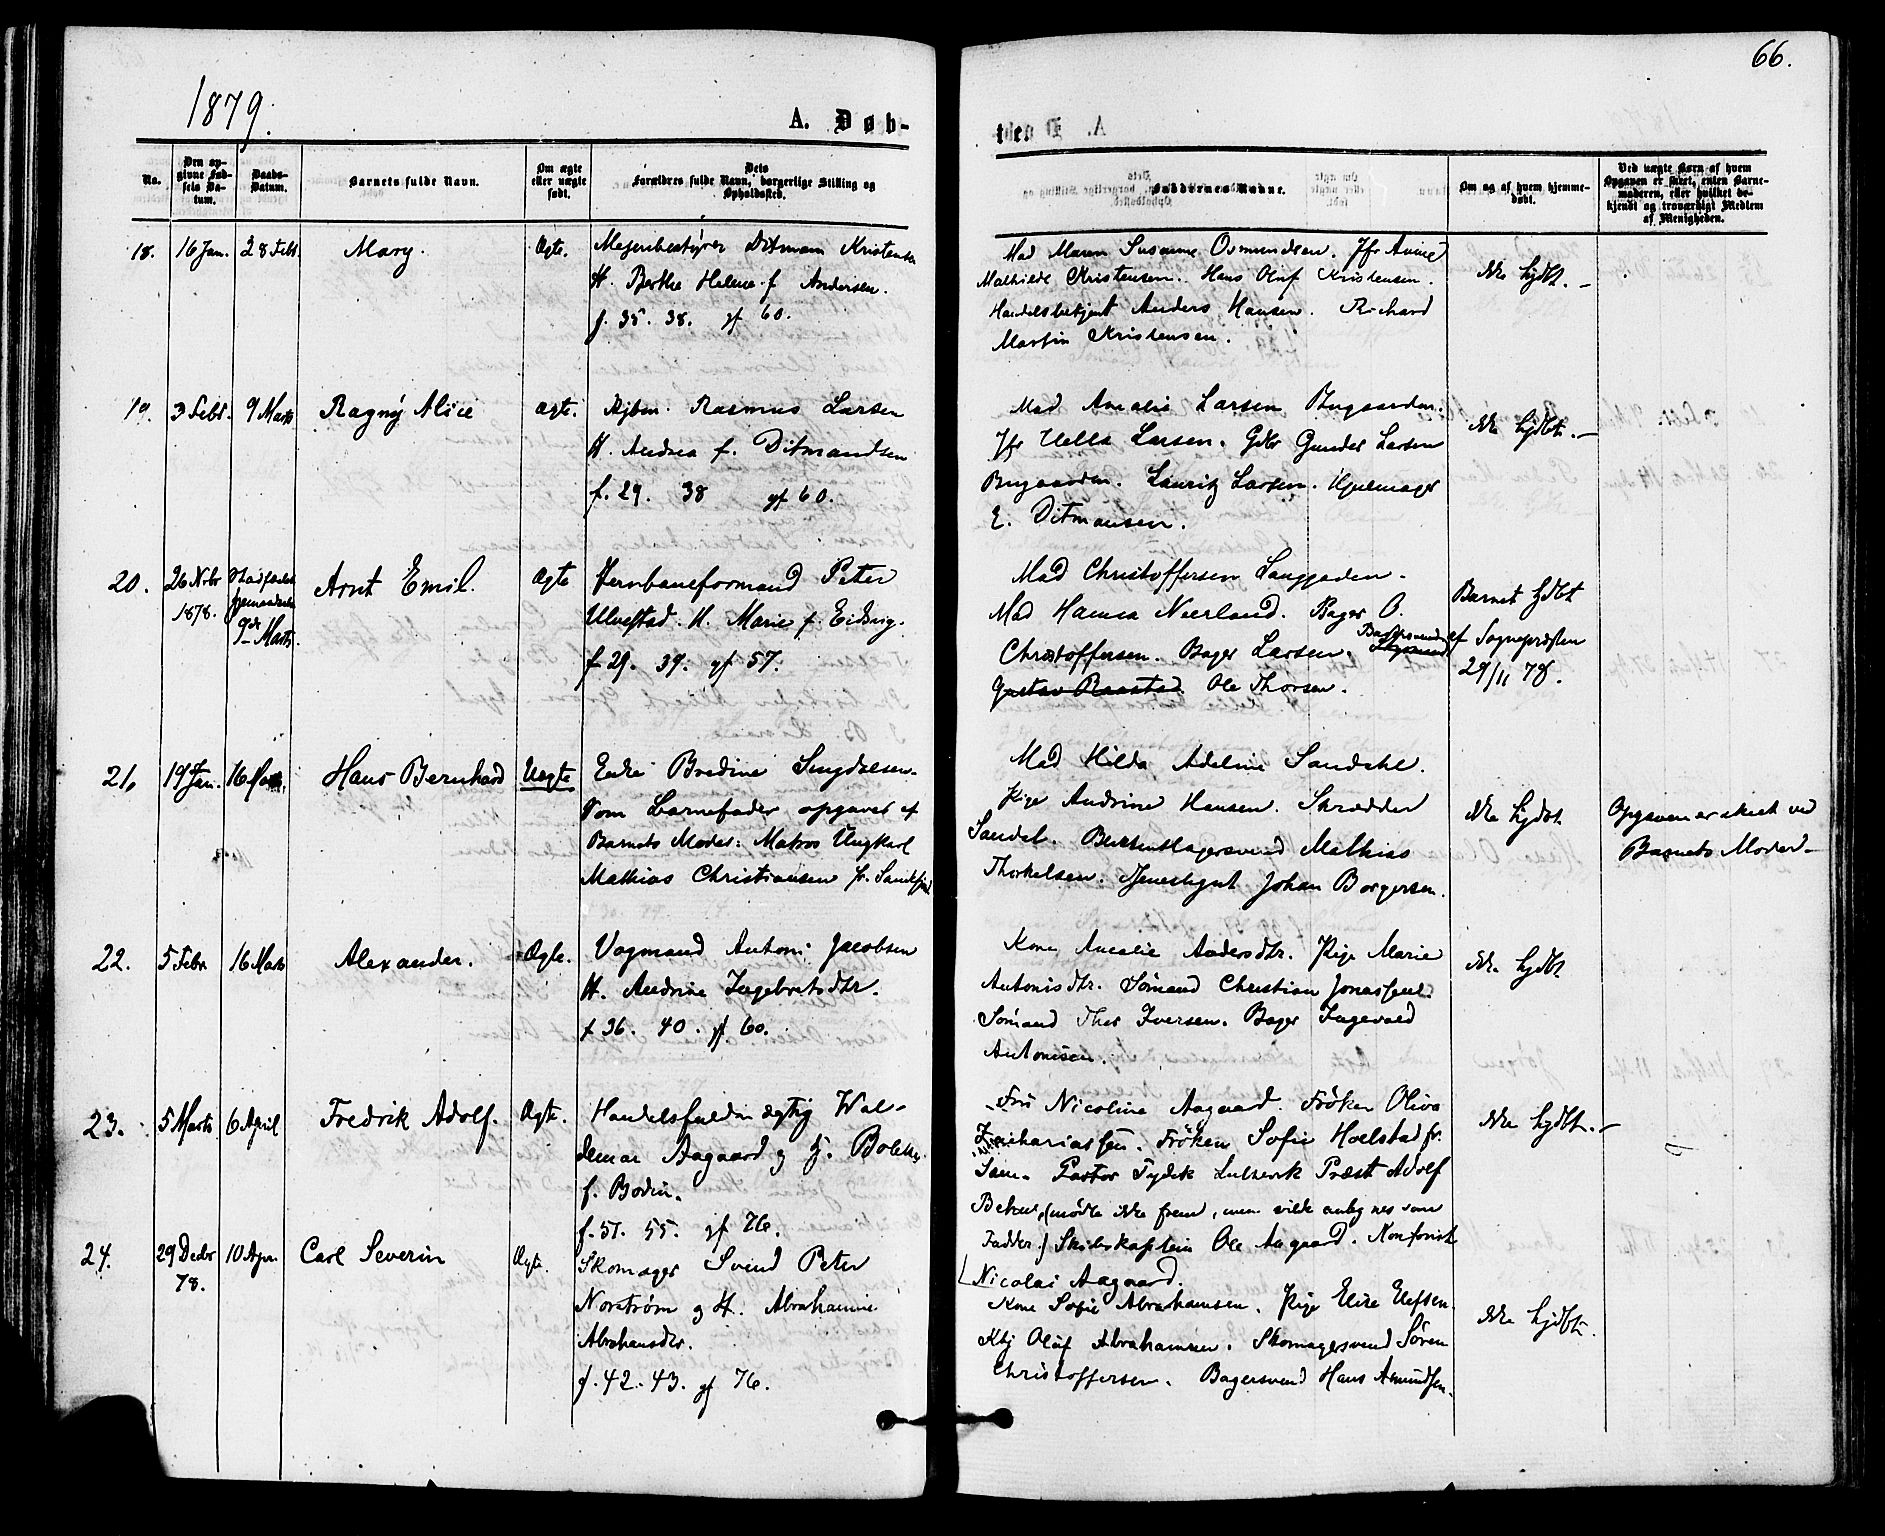 66.
1879.
A. Døb-
te
No.
Den opgivne Fødsels Datum.
Daabs-Datum.
Barnets fulde Navn.
Om ægte eller uægte født.
Dets Forældres fulde Navn, borgerlige Stilling og Opholdssted.
Faddernes Navne.
Om og af hvem hjemmedøbt.
Ved uægte Børn af hvem Opgaven er skeet, enten Barnemoderen, eller hvilket bekjendt og troværdigt Medlem af Menigheden.
18. 16 Jan. 28 Febr. Mary. Ægte.
Meieribestyrer Ditmann Kristensen
H. Berthe Helene f. Andersen.
f. 35. 38. gf 60.
Mad Maren Susanne Osmundsen. Jfr Anne
Mathilde Kristensen. Hans Oluf Kristensen.
Handelsbetjent Anders Hansen. Richard
Martin Kristensen.
ikke hjdbt. –
19. 3 Febr. 9 Marts Ragny Alice Ægte.
Kjbm. Rasmus Larsen
H. Andrea f. Ditmandsen
f. 29. 38 gf 60.
Mad Amalie Larsen Bugaarden.
Jfr Helle Larsen. Gdbr Gunder Larsen
Bugaarden. Lauritz Larsen. Hjulmager
E. Ditmansen.
ikke hjdbt. –
20. 26 Nvbr 1878. 9de Marts. Arnt Emil. Ægte
Jernbaneformand Peter
Ulvestad. H. Marie f. Eidsvig.
f 29. 39. gf 57.
Mad Christoffersen Langgaden.
Mad Hanna Neerland. Bager O.
Christoffersen. Bager Larsen. Bagersvend
Gustav Raastad. Ole Thorsen.
Barnet hjdbt
af Sognepræsten
29/11 78.
21. 19 Jan. 16 Marts. Hans Bernhard Uægte
Enke Bredine Smydalsen.
Som Barnefader opgaves af
Barnets Moder: Matros Ungkarl
Mathias Christiansen fr. Sandefjord
Mad Hilda Adeline Sandahl.
Pige Andrine Hansen. Skrædder
Sandal. Buntmagersvend Mathias
Thorkelsen. Tjenestegut Johan Borgersen.
ikke hjdbt
Opgaven er skeet ved
Barnets Moder –
22. 5 Febr. 16 Marts Alexander. Ægte.
Vogmand Anton Jacobsen
H. Andrine Ingebretsdtr.
f 36. 40. gf 60.
Kone Amalie Andersdtr. Pige Marie
Antonisdtr. Sømand Christian Jonassen.
Sømand Thor Iversen. Bager Ingevald
Antonisen.
ikke hjdbt
23. 5 Marts 6 April Fredrik Adolf. Ægte.
Handelsfuldmægtig Wal-
demar Aagaard og H. Bolette
f. Bodin.
f. 51. 55. gf 76.
Fru Nicoline Aagaard. Frøken Oliva
Zachariassen. Frøken Sofie Hoelstad fr.
Pastor Fydik Luthersk Præst Adolf
(mødte ikke frem, men vilde antegnes som
Fadder.) Skibskaptein Ole Aagaard. Kontorist
Nicolai Aagaard.
ikke hjdbt. –
24. 29 Decbr 78. 10 Apr. Carl Severin Ægte.
Skomager Svend Peter
Norstrøm og H. Abrahamine
Abrahamsdtr.
f. 42. 43. gf 76.
Kone Sofie Abrahamsen. Pige Elise Ulfsen.
Kbj Oluf Abrahamsen. Skomagersvend Søren
Christoffersen. Bagersvend Hans Asmundsen.
ikke hjdbt.